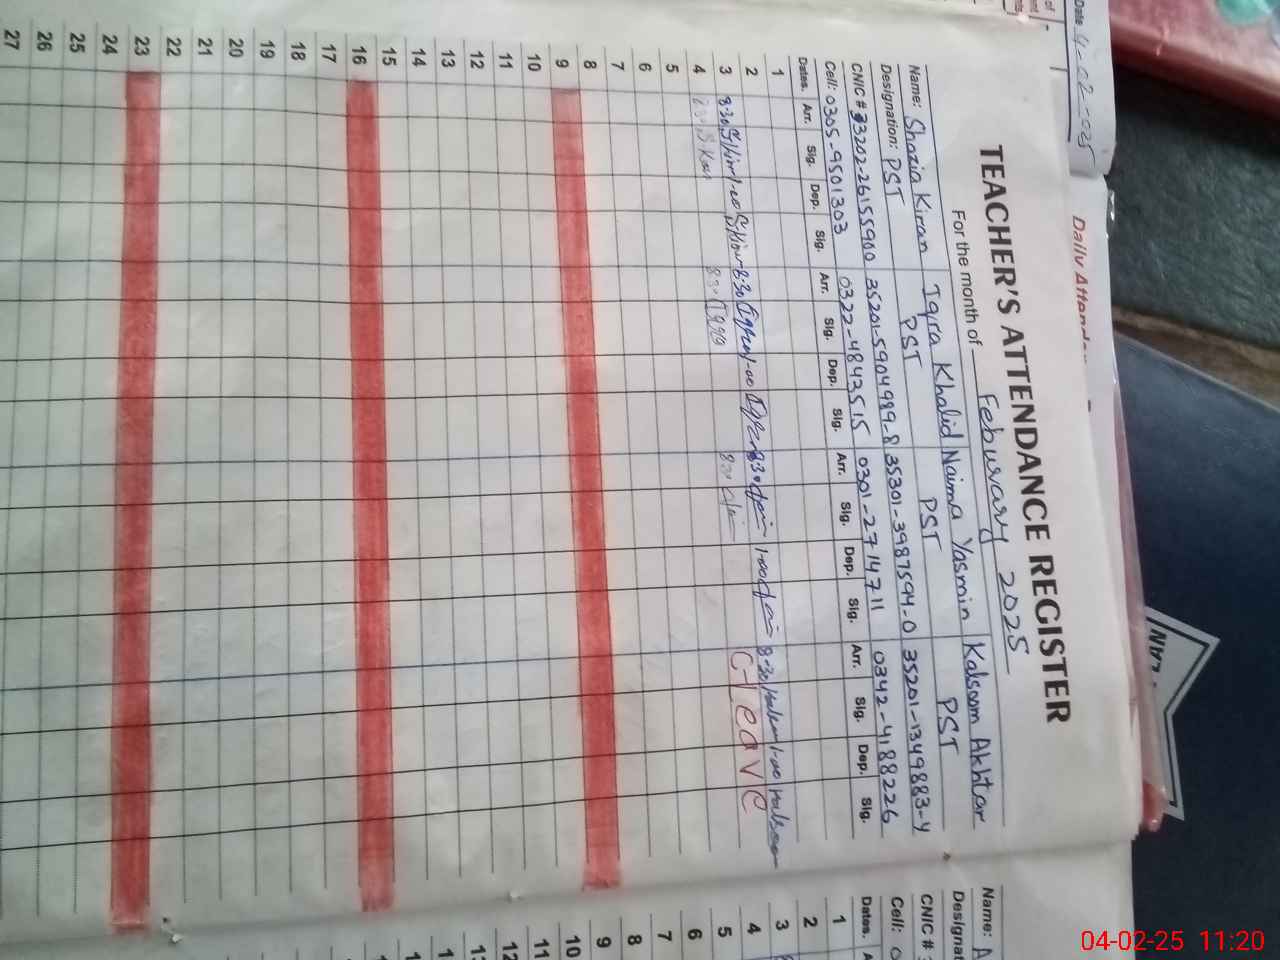 Date 4-02-2025
Daily
TEACHER'S ATTENDANCE REGISTER
For the month of Feburary 2025
Name: Shazia Kiran Iqra Khalid Naima Yasmin Kalsoom Akhtar
Designation: PST PST PST PST
CNIC # 33202-26155900 35201-5904989-8 35301-3987594-0 35201-1349883-4
Cell: 0305-9501303 0322-4843515 0301-2714711 0342-4188226
Dates. Arr. Sig. Dep. Sig. Arr. Sig. Dep. Sig. Arr. Sig. Dep. Sig. Arr. Sig. Dep. Sig.
1
2
3 8:30 1-00 8:30 1-00 8:30 1-00 8:30 1-00
4 8:30 8:30 8:30 C-leave
5
6
7
8
9
10
11
12
13
14
15
16
17
18
19
20
21
22
23
24
25
26
27
Name: A
Designat
CNIC #
Cell: 0
Dates. A
1
2
3
4
5
6
7
8
9
10
11
12
04-02-25 11:20